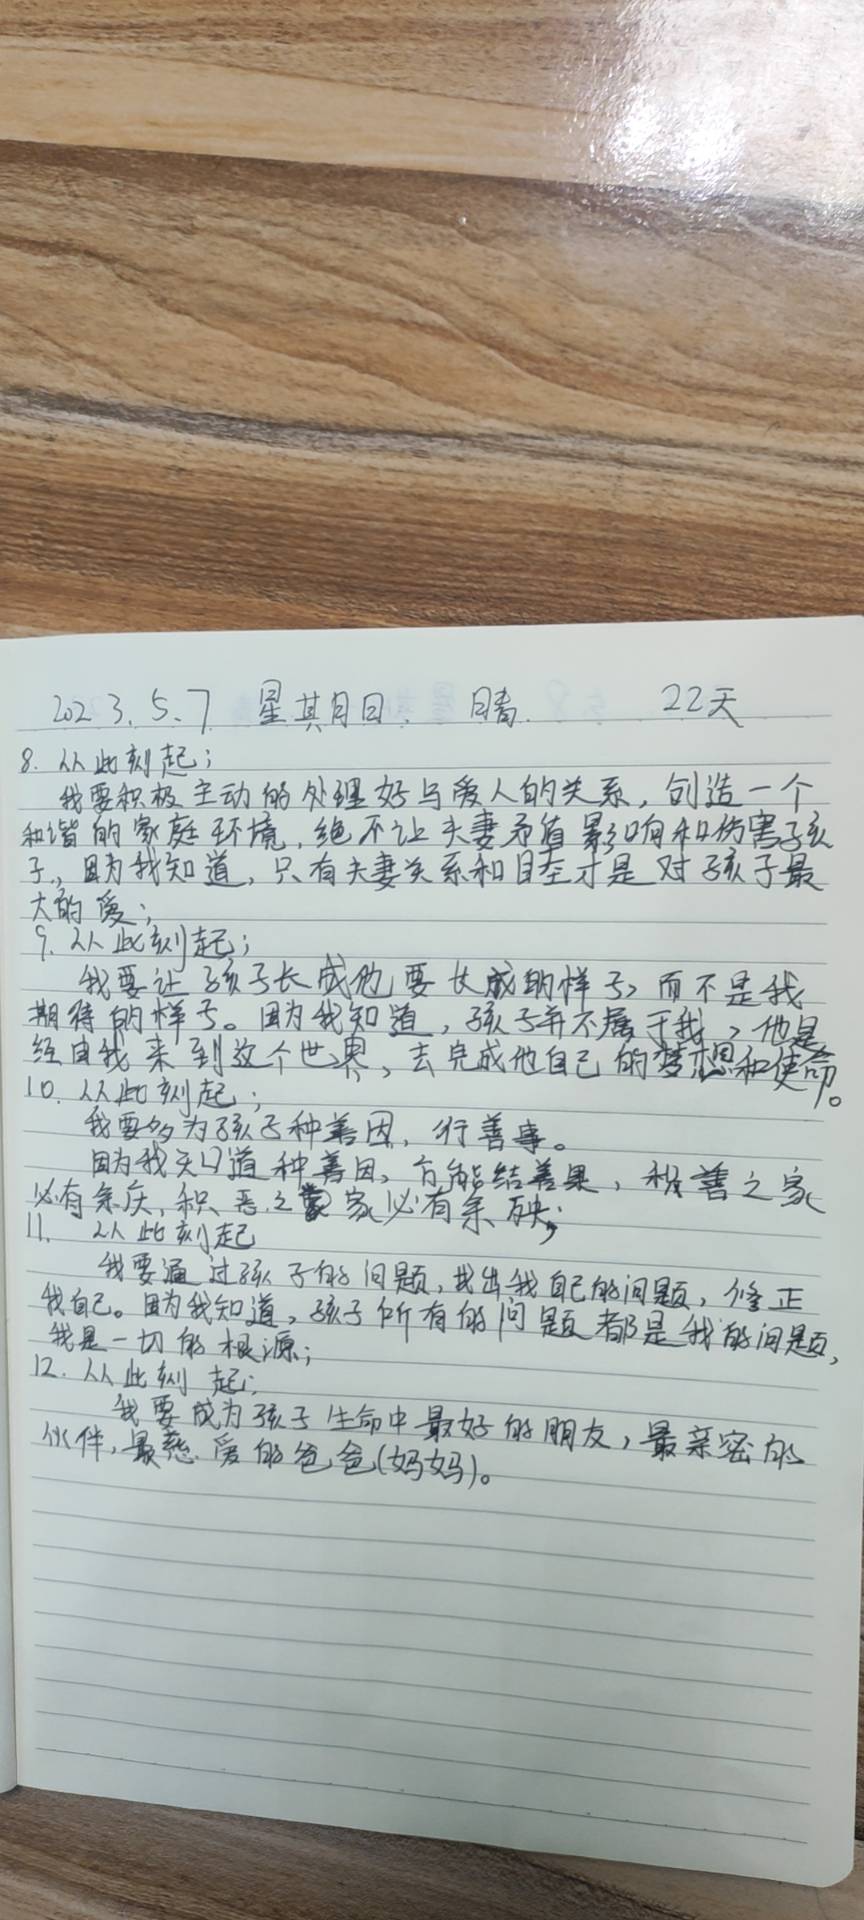 2023.5.7 星期日. 晴. 22天
8. 从此刻起;
我要积极主动的处理好与爱人的关系, 创造一个
和谐的家庭环境, 绝不让夫妻矛盾影响和伤害孩
子, 因为我知道, 只有夫妻关系和目至才是对孩子最
大的爱;
9. 从此刻起;
我要让孩子长成他要长成的样子, 而不是我
期待的样子。因为我知道, 孩子并不属于我, 他是
经由我来到这个世界, 去完成他自己的梦想和使命。
10. 从此刻起;
我要多为孩子种善因, 行善事。
因为我知道种善因, 方能结善果, 积善之家
必有余庆, 积恶之家必有余殃;
11. 从此刻起
我要通过孩子的问题, 找出我自己的问题, 修正
我自己。因为我知道, 孩子所有的问题都是我的问题,
我是一切的根源;
12. 从此刻起;
我要成为孩子生命中最好的朋友, 最亲密的
伙伴, 最慈爱的爸爸(妈妈)。